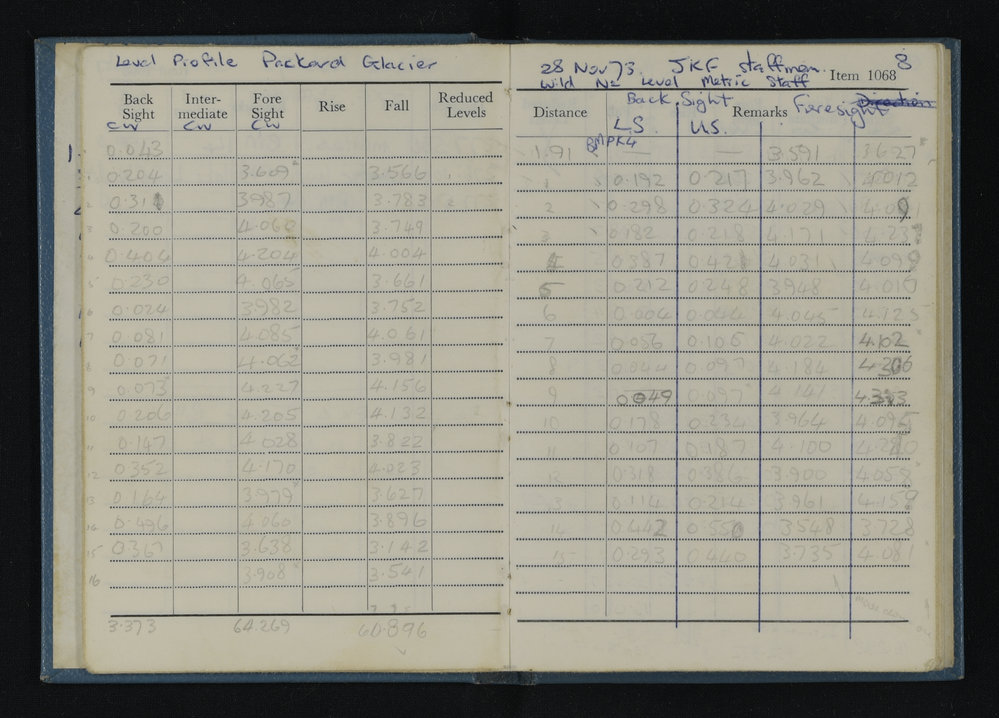 Level Profile Packard Glacier
Back Sight Inter-mediate Fore Sight Rise Fall Reduced Levels
CW CW CW
0.043
0.204 3.609 3.566
0.311 3.987 3.783
0.200 4.060 3.749
0.404 4.204 4.004
0.230 4.065 3.661
0.024 3.982 3.752
0.081 4.085 4.061
0.071 4.062 3.981
0.073 4.227 4.156
0.206 4.205 4.132
0.147 4.028 3.822
0.352 4.170 4.023
0.164 3.979 3.627
0.496 4.060 3.896
0.367 3.638 3.142
3.908 3.541
3.373 64.269 60.896
28 Nov 73. JKF Staffman. 8
Wild N2 Level Metric Staff Item 1068
Distance Back Sight Remarks Foresight
L.S. U.S.
1.91 BMPK4 — — 3.591 3.627
1 0.192 0.217 3.962 4.012
2 0.298 0.324 4.029 4.091
3 0.182 0.218 4.171
4 0.387 0.421 4.031 4.099
5 0.212 0.248 3.948 4.010
6 0.004 0.044 4.045 4.125
7 0.056 0.105 4.022 4.102
8 0.044 0.097 4.184
9 0.049 0.097 4.141
10 0.178 0.234 3.964
11 0.107 0.187 4.100
12 0.318 0.386 3.900 4.058
13 0.114 0.214 3.961 4.159
14 0.442 0.550 3.548 3.728
15 0.293 0.440 3.735 4.081